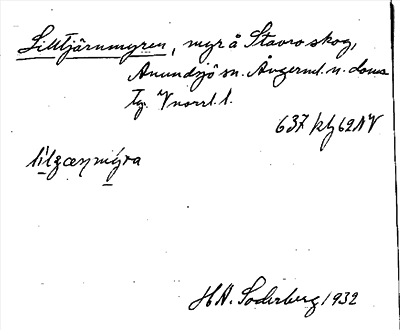 Lilltjärnmyren, myr å Stavro skog,
Anundsjö sn. Ångerml. n. doms
Tg. V norrl. l.
637 kly 62 NV
H A. Söderberg 1932